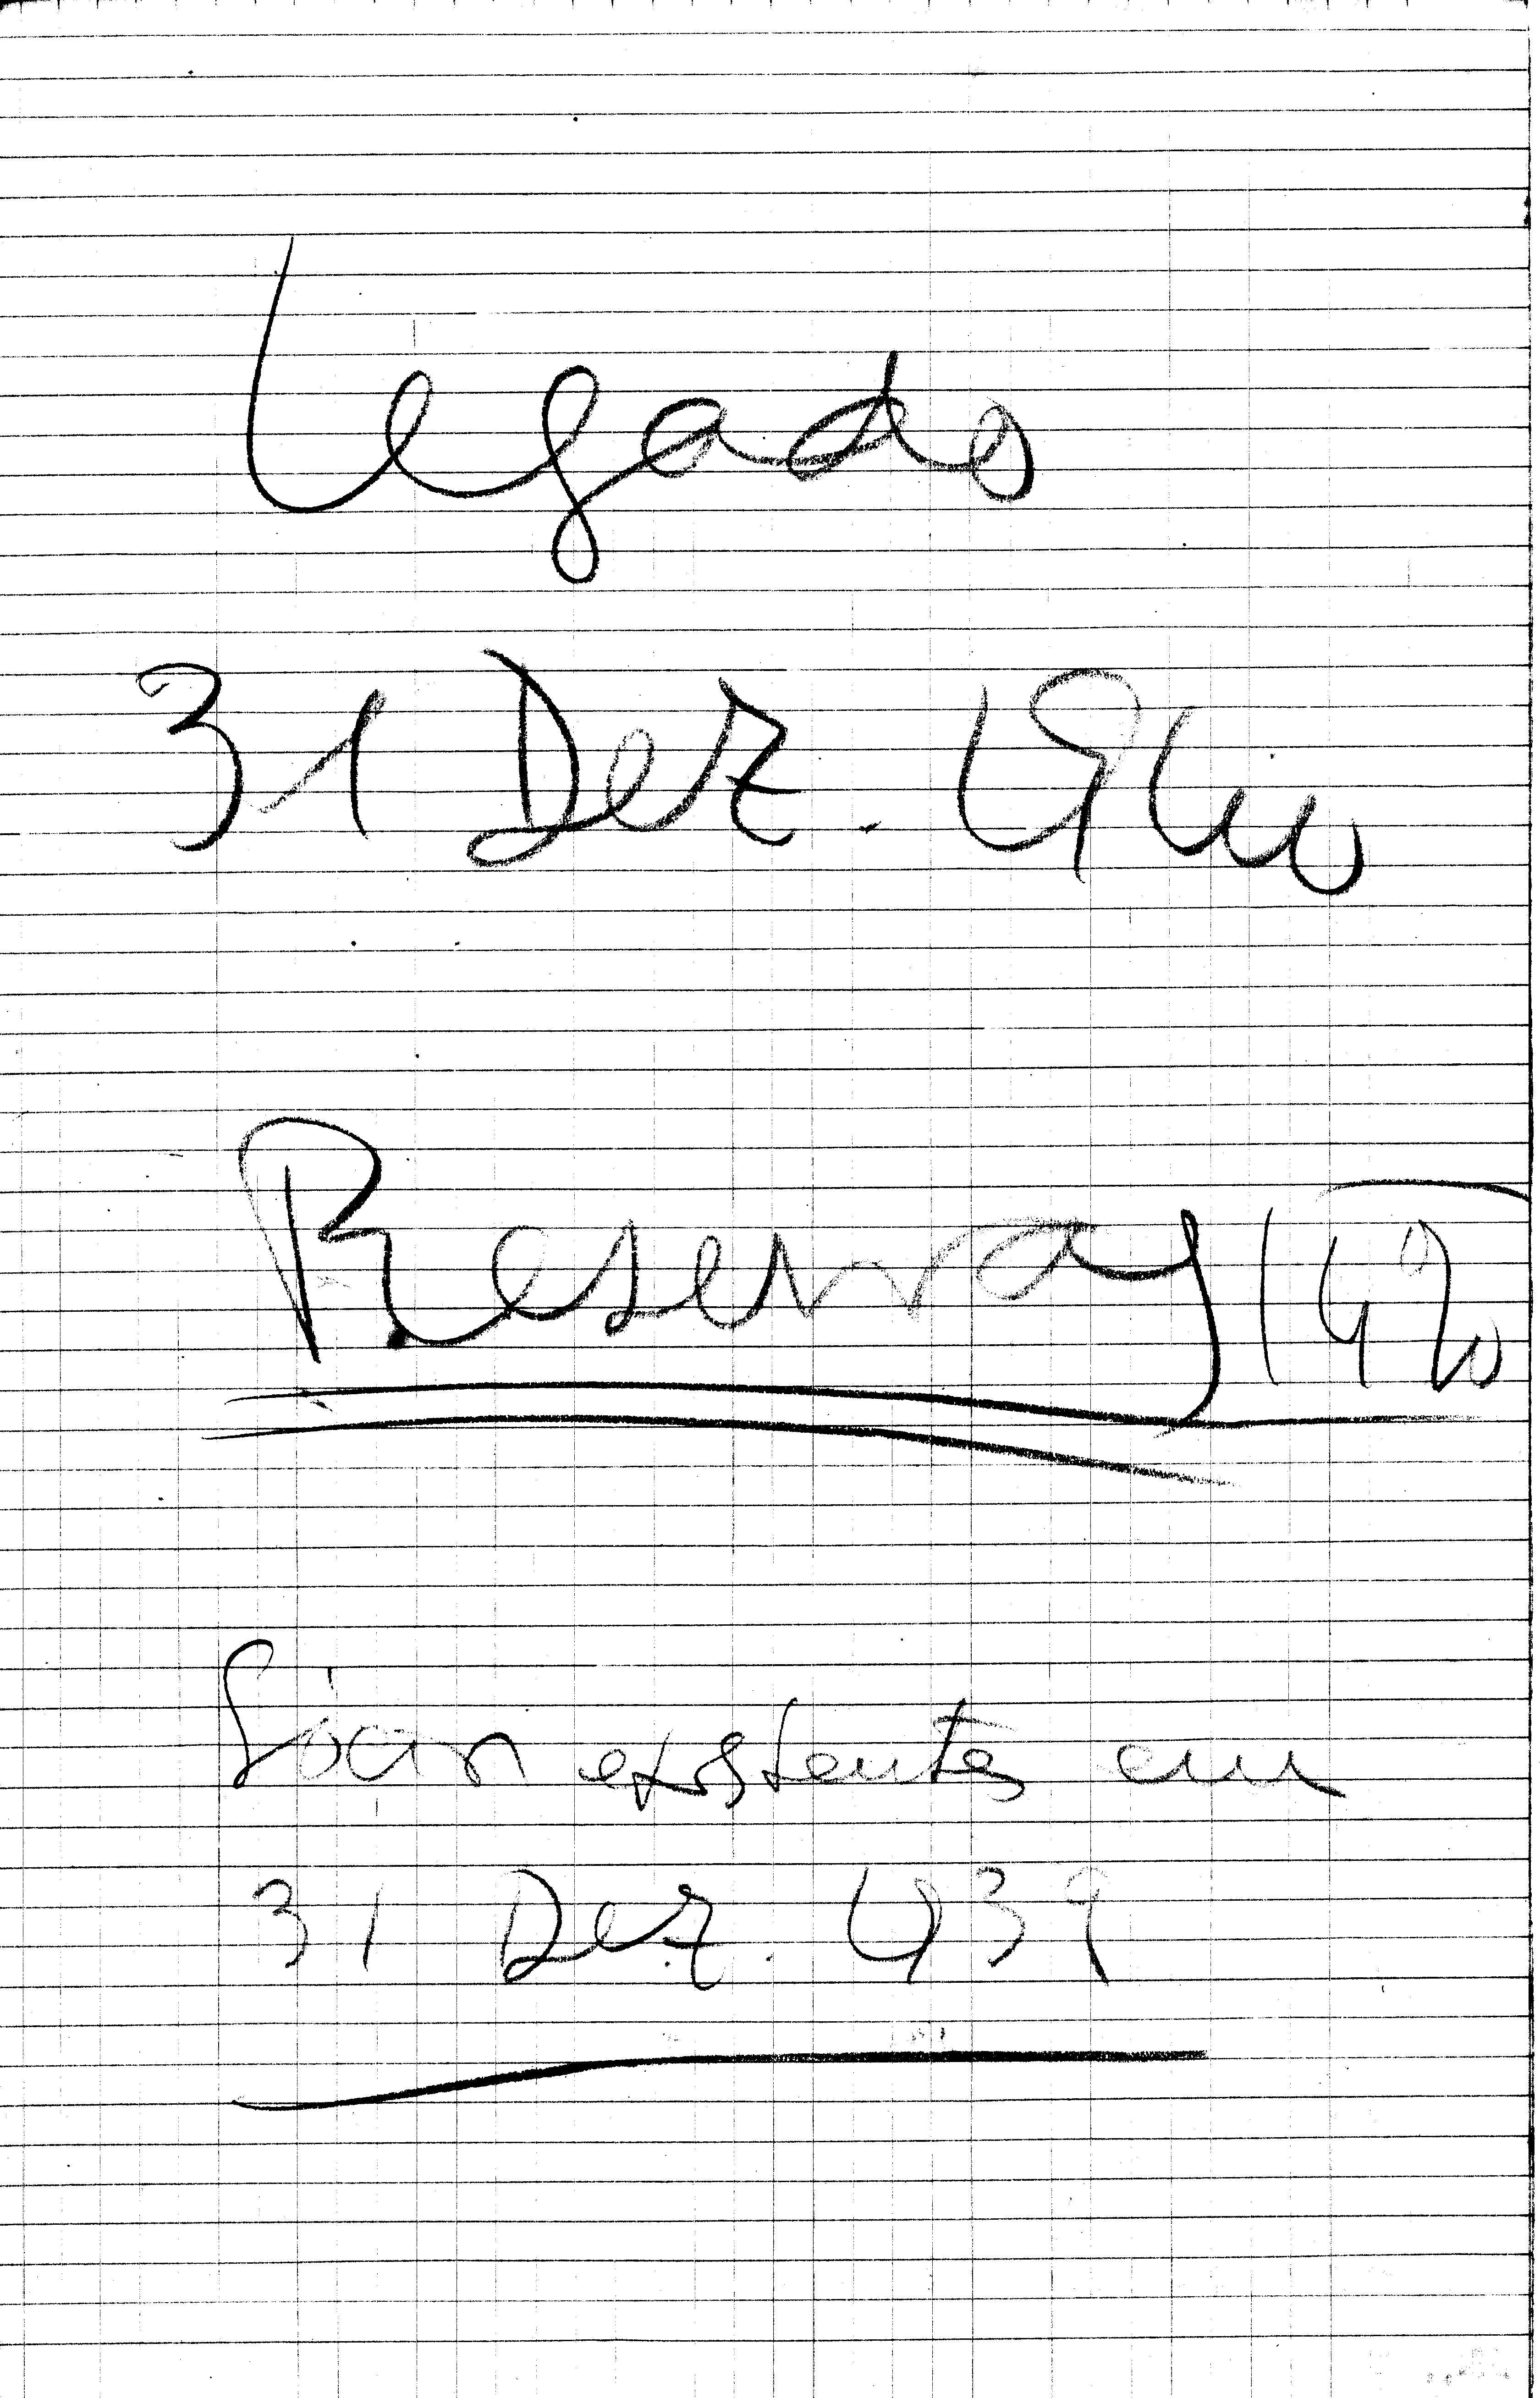 Legado
31 Dez. 1940
Reservas 1940
existentes em
31 Dez. 1939